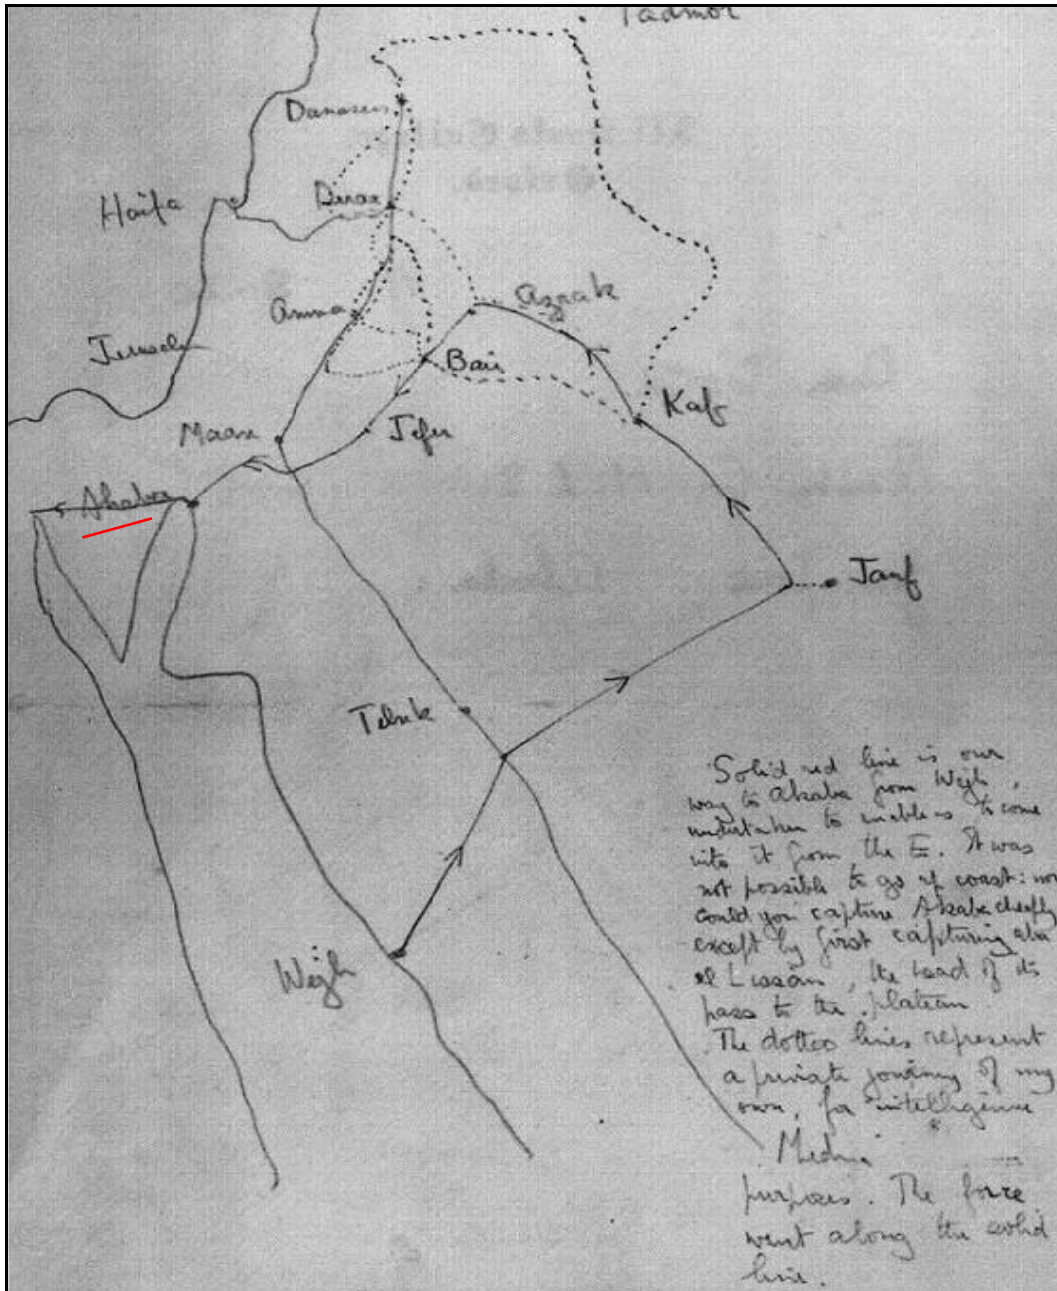 Tadmor
Damascus
Haifa
Deraa
Azrak
Amma
Jerusale
Bair
Kaf
Maan
Jefer
Akaba
Jauf
Tebuk
Wejh
Solid red line is our
way to Akaba from Wejh,
undertaken to enable us to come
into it from the E. It was
not possible to go up coast: nor
could you capture Akaba cheaply
except by first capturing aba
el Lissan, the head of its
pass to the plateau
The dotted lines represent
a private journey of my
own, for intelligence
Medina
purposes. The force
went along the solid
line.